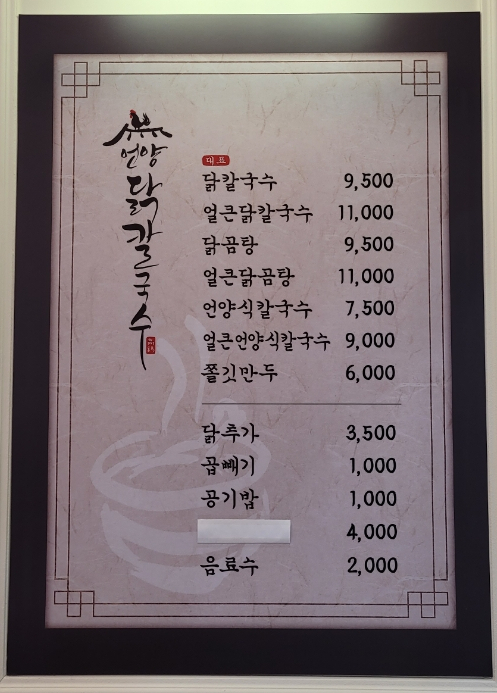 언양
닭칼국수
대표
닭칼국수 9,500
얼큰닭칼국수 11,000
닭곰탕 9,500
얼큰닭곰탕 11,000
언양식칼국수 7,500
얼큰언양식칼국수 9,000
쫄깃만두 6,000
닭추가 3,500
곱빼기 1,000
공기밥 1,000
4,000
음료수 2,000